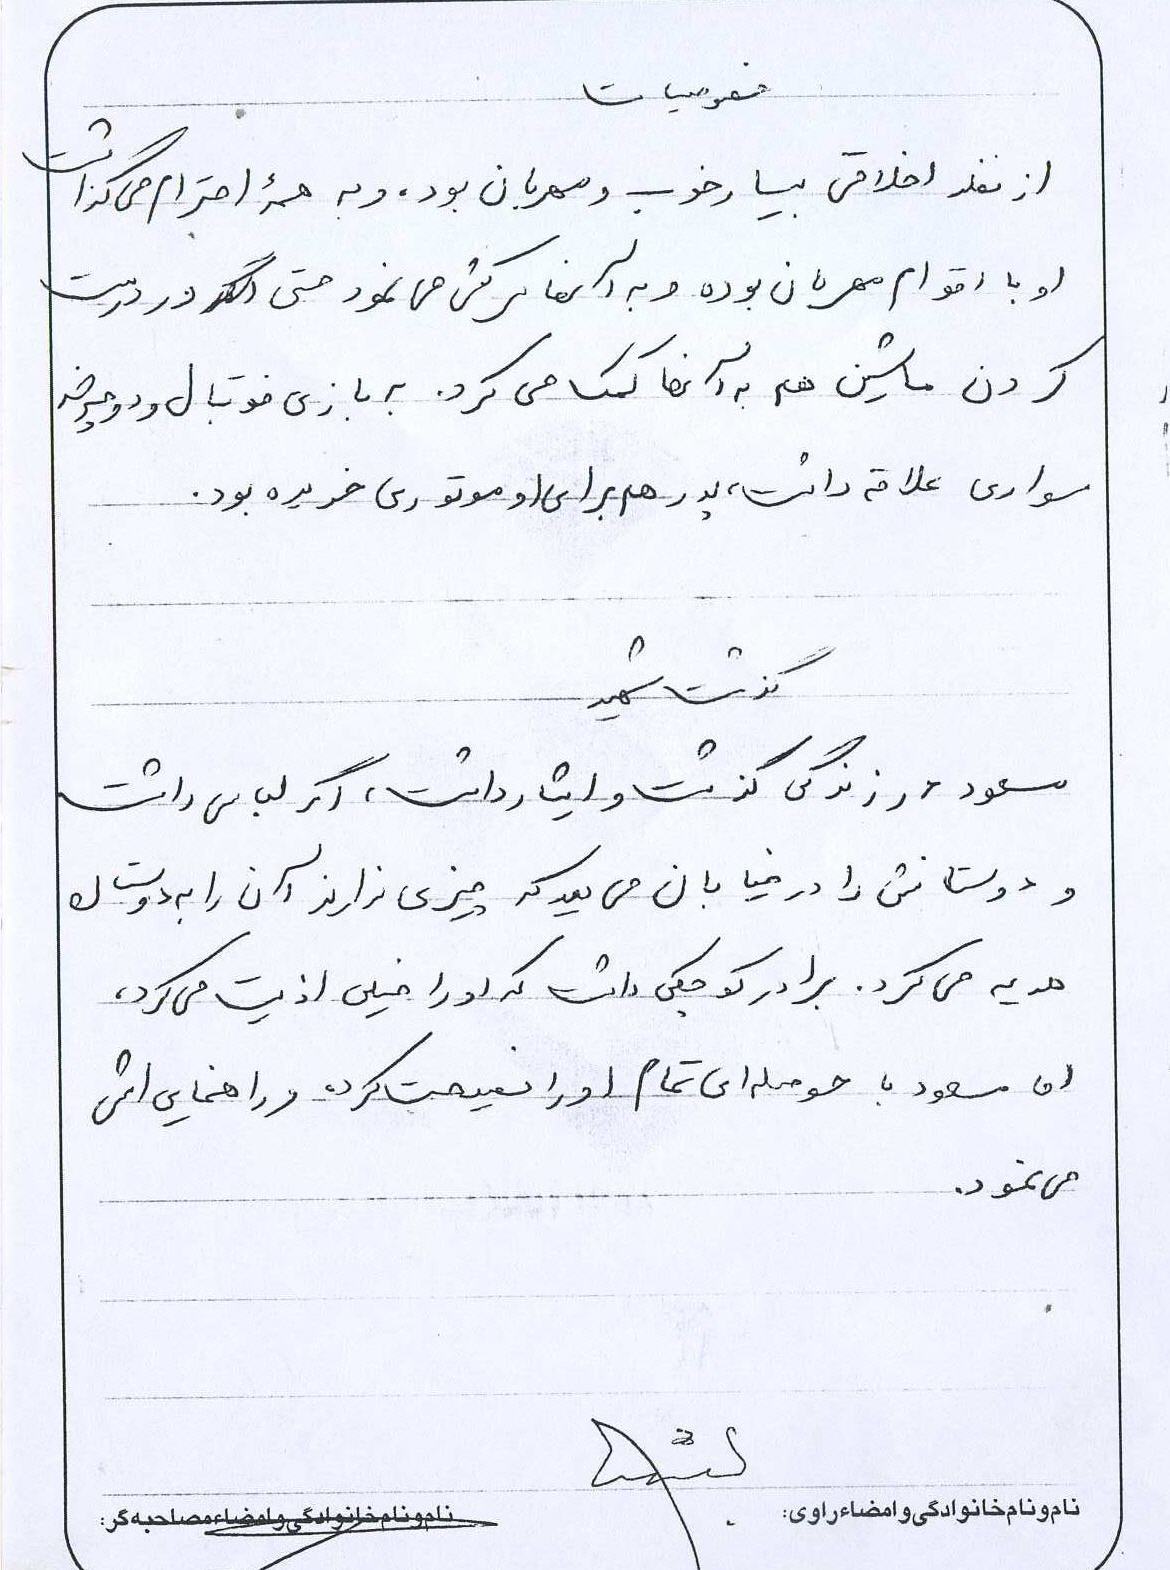 خصوصیات
از نظر اخلاقی بسیار خوب و مهربان بود، و به همهٔ احترام می گذاشت
او با اقوام مهربان بوده و به آنها سرکشی می نمود حتی در درست
کردن ماشین هم به آنها کمک می کرد. به بازی فوتبال و دوچرخه
سواری علاقه داشت، پدر هم برای او موتوری خریده بود.
گذشت شهید
مسعود در زندگی گذشت و ایثار داشت، اگر لباس داشت
و دوستانش را در خیابان می دید که چیزی ندارند آن را به دوستان
هدیه می کرد. برادر کوچکی داشت که او را خیلی اذیت می کرد،
اما مسعود با حوصله ای تمام او را نصیحت کرده و راهنمایی اش
می نمود.
نام و نام خانوادگی و امضاء راوی:
نام و نام خانوادگی و امضاء مصاحبه گر: